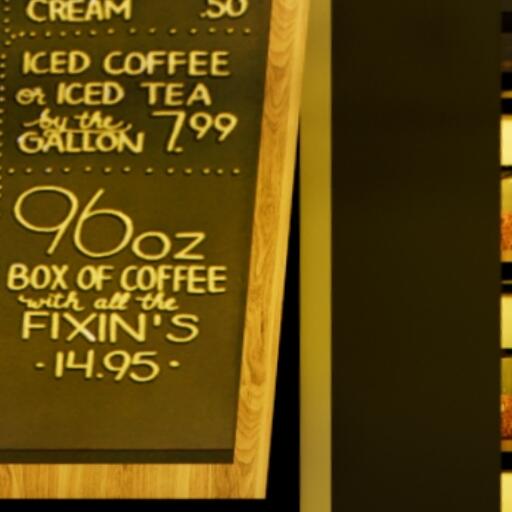 CREAM .50
ICED COFFEE
or ICED TEA
by the
GALLON 7.99
96oz
BOX OF COFFEE
with all the
FIXIN'S
-14.95-